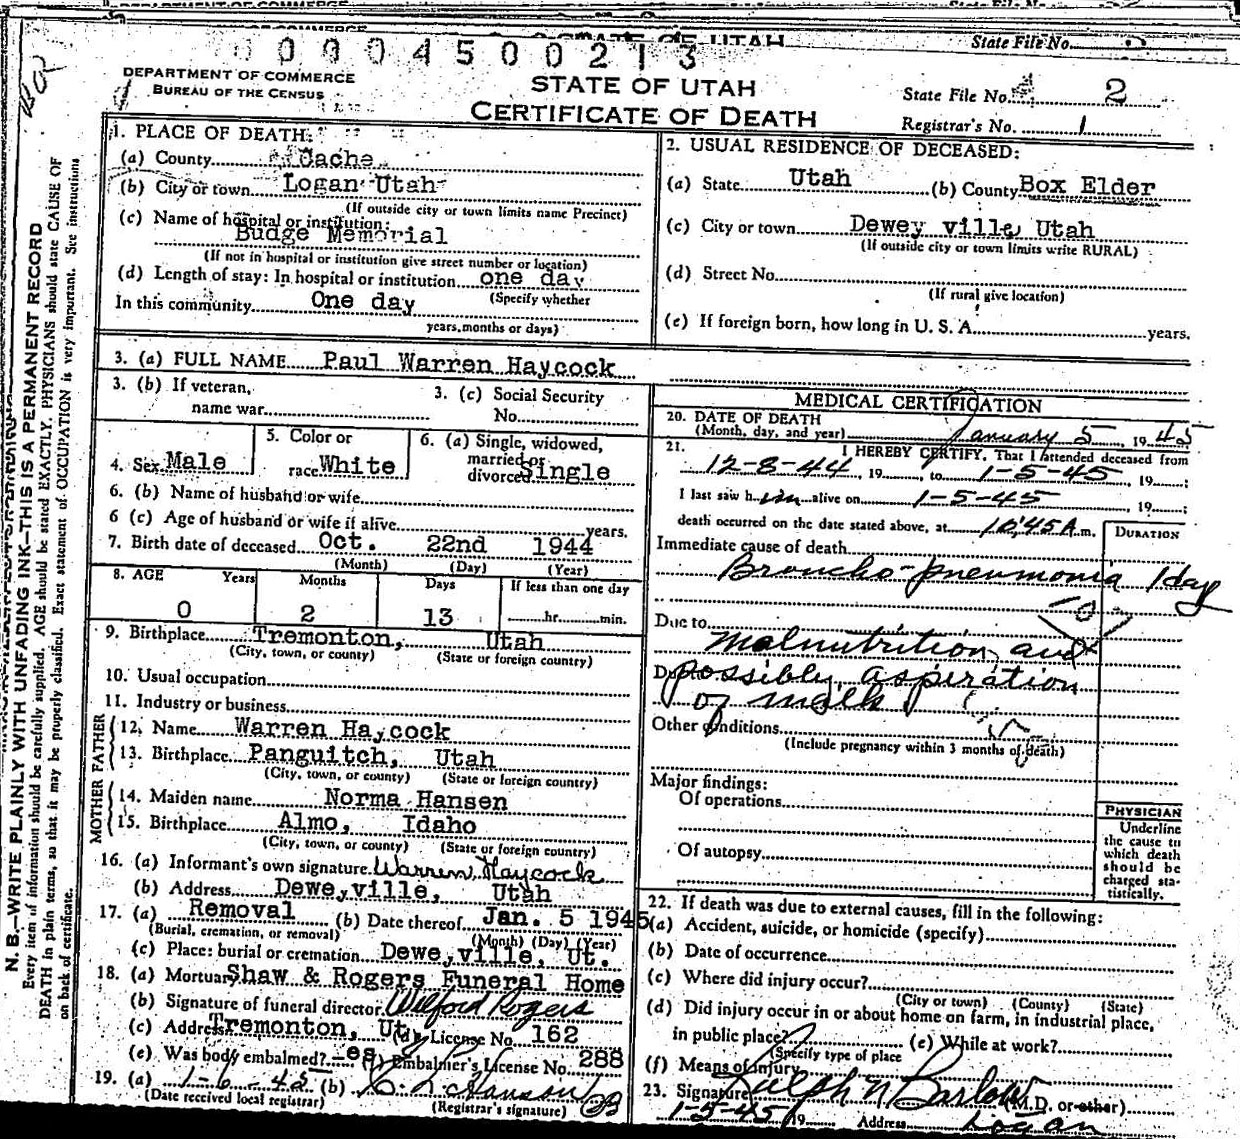 DEPARTMENT OF COMMERCE
State File No.
COMMERCE
STATE OF UTAH
State File No.
0004500213
DEPARTMENT OF COMMERCE
BUREAU OF THE CENSUS
STATE OF UTAH
CERTIFICATE OF DEATH
State File No. 2
Registrar's No. 1
N. B.—WRITE PLAINLY WITH UNFADING INK—THIS IS A PERMANENT RECORD
Every item of information should be carefully supplied. AGE should be stated EXACTLY. PHYSICIANS should state CAUSE OF
DEATH in plain terms, so that it may be properly classified. Exact statement of OCCUPATION is very important. See instructions
on back of certificate.
1. PLACE OF DEATH:
(a) County Cache
(b) City or town Logan Utah
(If outside city or town limits name Precinct)
(c) Name of hospital or institution:
Budge Memorial
(If not in hospital or institution give street number or location)
(d) Length of stay: In hospital or institution one day
(Specify whether
In this community One day
years, months or days)
2. USUAL RESIDENCE OF DECEASED:
(a) State Utah (b) County Box Elder
(c) City or town Dewey ville, Utah
(If outside city or town limits write RURAL)
(d) Street No.
(If rural give location)
(e) If foreign born, how long in U. S. A. years.
3. (a) FULL NAME Paul Warren Haycock
3. (b) If veteran,
name war
3. (c) Social Security
No.
4. Sex Male
5. Color or
race White
6. (a) Single, widowed,
married or
divorced Single
6. (b) Name of husband or wife
6 (c) Age of husband or wife if alive years.
7. Birth date of deceased Oct. 22nd 1944
(Month) (Day) (Year)
8. AGE Years Months Days If less than one day
0 2 13 hr. min.
9. Birthplace Tremonton, Utah
(City, town, or county) (State or foreign country)
10. Usual occupation
11. Industry or business
FATHER
12. Name Warren Haycock
13. Birthplace Panguitch, Utah
(City, town, or county) (State or foreign country)
MOTHER
14. Maiden name Norma Hansen
15. Birthplace Almo, Idaho
(City, town, or county) (State or foreign country)
16. (a) Informant's own signature Warren Haycock
(b) Address Dewe,ville, Utah
17. (a) Removal (b) Date thereof Jan. 5 1945
(Burial, cremation, or removal) (Month) (Day) (Year)
(c) Place: burial or cremation Dewe,ville, Ut.
18. (a) Mortuary Shaw & Rogers Funeral Home
(b) Signature of funeral director Wilford Rogers
(c) Address Tremonton, Ut. (d) License No. 162
(e) Was body embalmed? Embalmer's License No. 288
19. (a) 1-6-45 (b)
(Date received local registrar) (Registrar's signature)
MEDICAL CERTIFICATION
20. DATE OF DEATH
(Month, day, and year) January 5, 1945
21. I HEREBY CERTIFY, That I attended deceased from
12-8-44, 19 , to 1-5-45, 19 ;
I last saw him alive on 1-5-45, 19 ;
death occurred on the date stated above, at 10:45 A.m.
DURATION
Immediate cause of death
Broncho-pneumonia 1 day
Due to
malnutrition and
Due to possibly aspiration
of milk
Other conditions
(Include pregnancy within 3 months of death)
Major findings:
Of operations
Of autopsy
PHYSICIAN
Underline
the cause to
which death
should be
charged sta-
tistically.
22. If death was due to external causes, fill in the following:
(a) Accident, suicide, or homicide (specify)
(b) Date of occurrence
(c) Where did injury occur?
(City or town) (County) (State)
(d) Did injury occur in or about home on farm, in industrial place,
in public place? (e) While at work?
(Specify type of place
(f) Means of injury
23. Signature Ralph N Barlow (M.D. or other)
1-5-45, 19 Address Logan